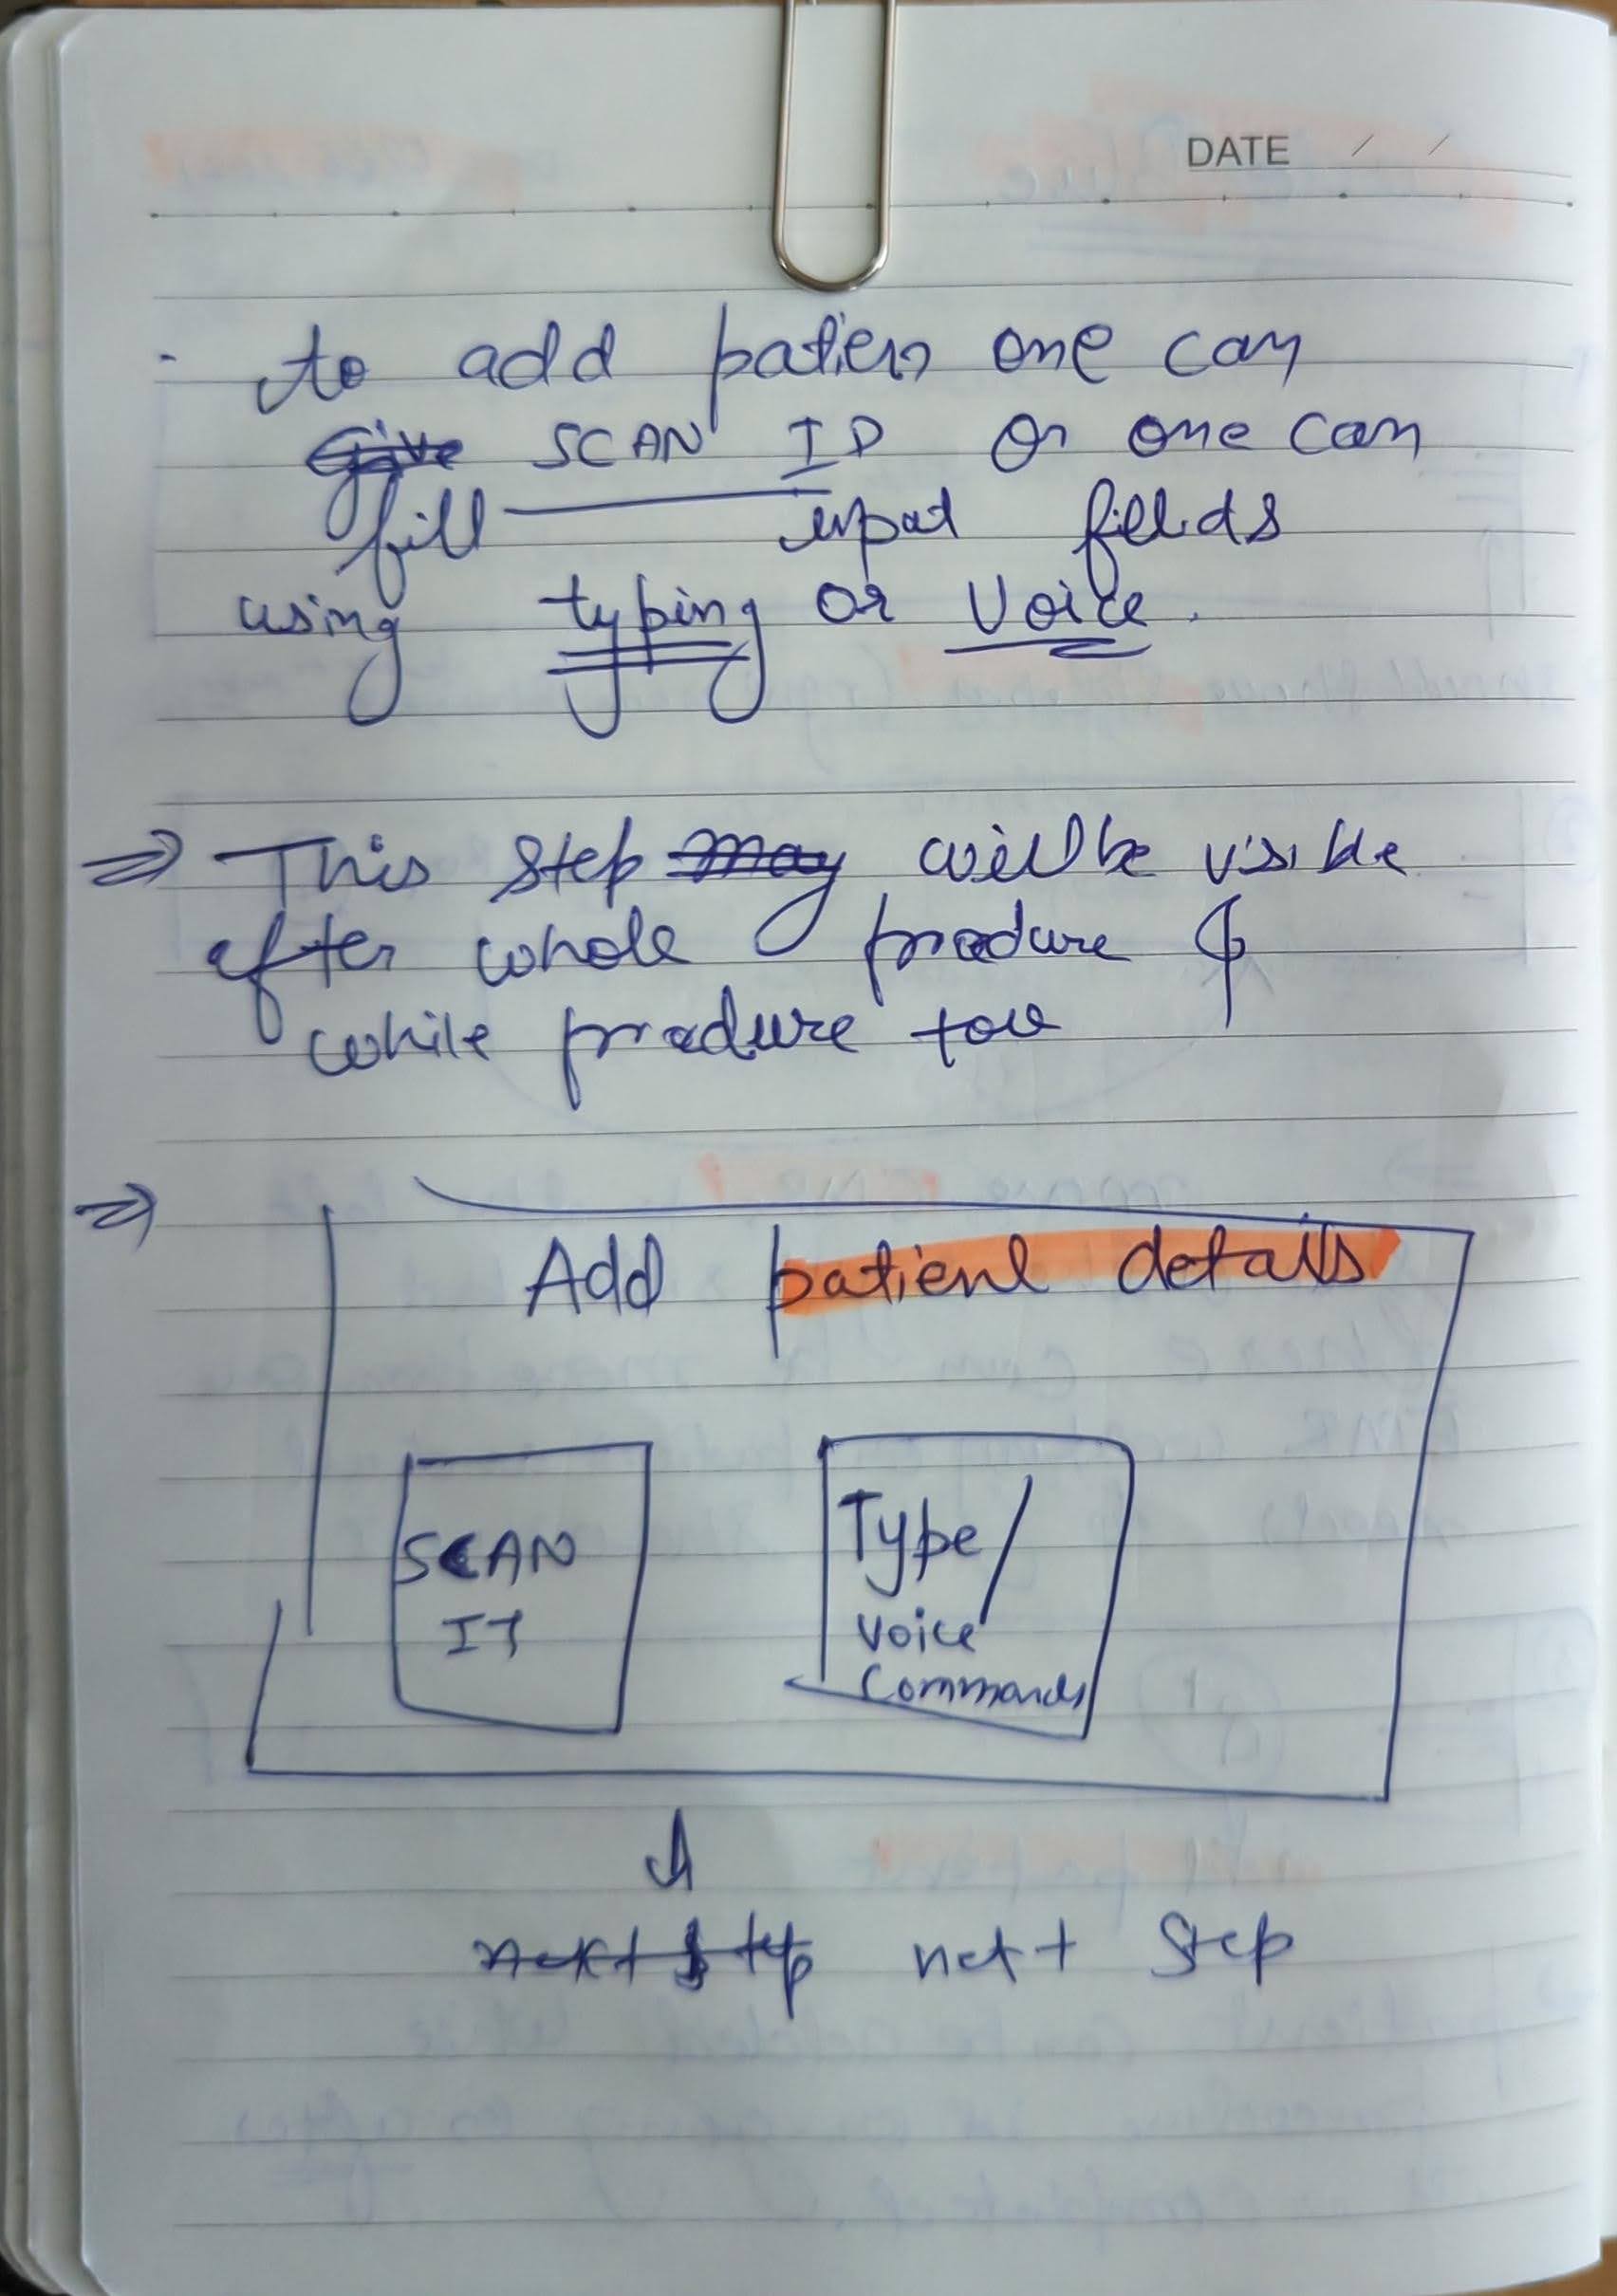 DATE / /
- to add patien one can
Give SCAN ID or one can
fill input feilds
using typing or Voice.
⇒ This step may will be visible
after whole produre &
while produre too
⇒
Add patient details
SCAN
IT
Type/
Voice
Commands
next step next step